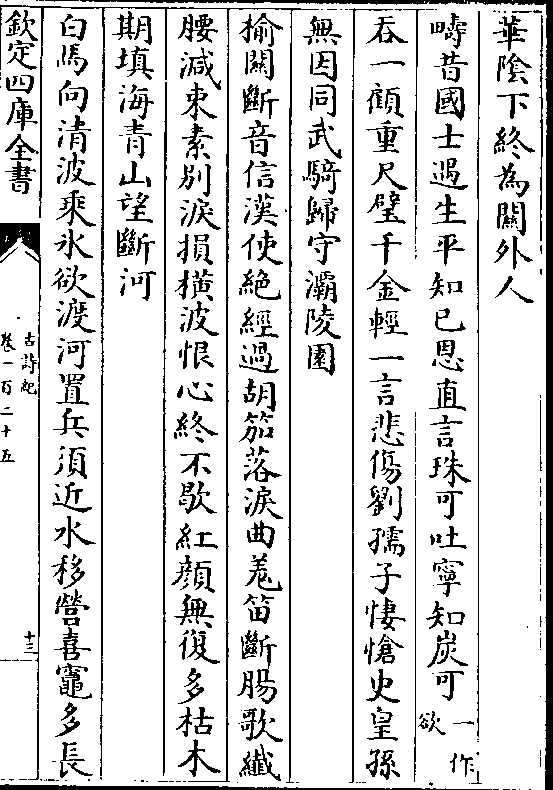 華陰下終為關外人
疇昔國士遇生平知已恩直言珠可吐寧知炭可一作欲
吞一顧重尺璧千金輕一言悲傷劉孺子悽愴史皇孫
無因同武騎歸守灞陵園
榆關斷音信漢使絶經過胡笳落淚曲羗笛斷腸歌纖
腰減束素别淚損橫波恨心終不歇紅顔無復多枯木
期填海青山望斷河
白馬向清波乘氷欲渡河置兵須近水移營喜竈多長
欽定四庫全書
古詩紀
卷一百二十五
十三